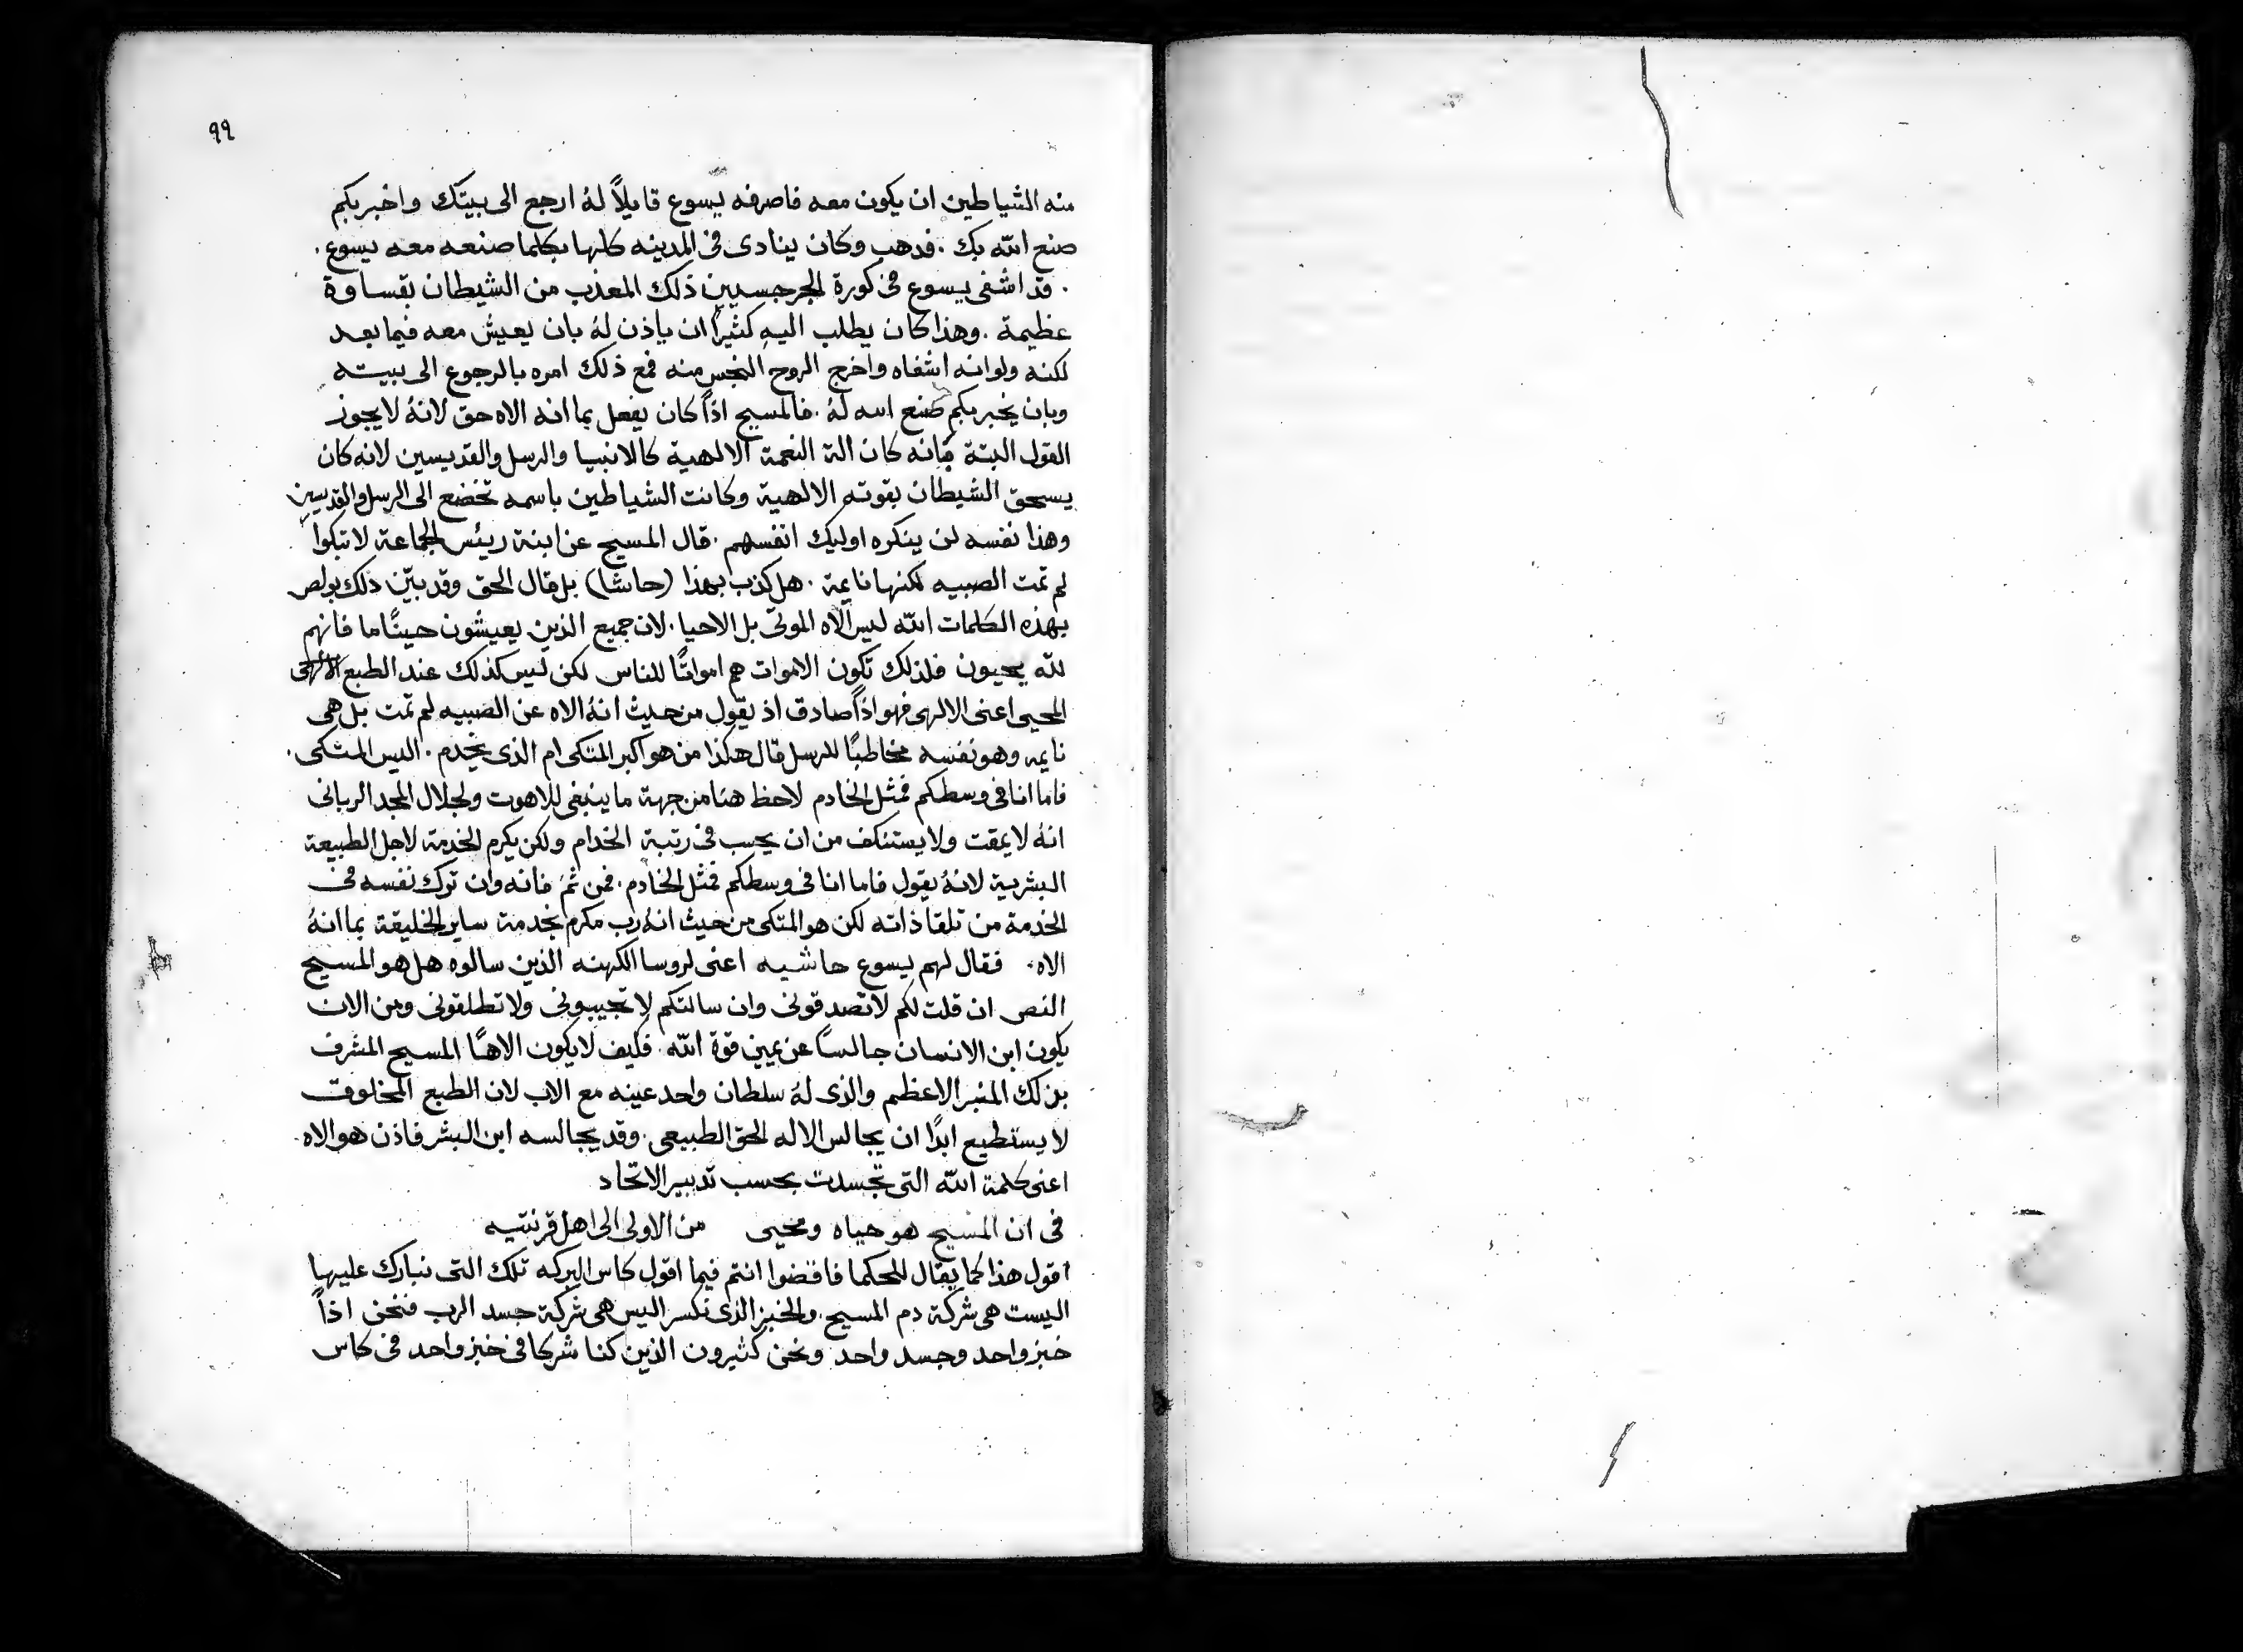 ٩٩
منه الشياطين ان يكون معه فاصرفه يسوع قايلاً لهُ ارجع الى بيتك واخبر بكم
صنع الله بك . فدهب وكان ينادى فى المدينه كلها بكلما صنعه معه يسوع .
. قد اشفى يسوع فى كورة الجرجسيين ذلك المعذب من الشيطان بقساوة
عظيمة . وهذا كان يطلب اليهِ كثيرًا ان ياذن لهُ بان يعيش معه فيما بعد
لكنه ولو انه اشفاه واخرج الروح النجس منه فمع ذلك امره بالرجوع الى بيته
وبان يخبر بكم صنع الله لهُ . فالمسيح اذًا كان يفعل بما انه الاه حق لانهُ لا يجوز
القول البتة بانه كان الة النعمة الالهية كالانبيا والرسل والقديسين لانه كان
يسحق الشيطان بقوته الالهية وكانت الشياطين باسمه تخضع الى الرسل والقديسين
وهذا نفسه لن ينكره اوليك انفسهم . قال المسيح عن ابنة ريئس الجماعة لا تبكوا
لم تمت الصبيه لكنها نايمة . هل كذب بهذا (حاشا) بل قال الحق وقد بيّن ذلك بولص
بهذه الكلمات الله ليس الاه الموتى بل الاحيا . لان جميع الذين يعيشون حينًا ما فانهم
لله يحيون فلذلك تكون الاموات هم امواتًا للناس لكن ليس كذلك عند الطبع الالهى
المحيى اعنى الالهى فهو اذًا صادق اذ يقول من حيث انهُ الاه عن الصبيه لم تمت بل هى
نايمه وهو نفسه مخاطبًا للرسل قال هكذا من هو اكبر المتكى ام الذى يخدم . اليس المتكى .
فاما انا فى وسطكم فمثل الخادم لاحظ هنا من جهة ما ينبغى للاهوت ولجلال المجد الربانى
انهُ لا يمقت ولا يستنكف من ان يحسب فى رتبة الخدام ولكن يكرم الخدمة لاجل الطبيعة
البشرية لانهُ يقول فاما انا فى وسطكم فمثل الخادم . فمن ثمَ فانه وان ترك نفسه فى
الخدمة من تلقا ذاته لكن هو المتكى من حيث انهُ رب مكرم بخدمة ساير الخليقة بما انهُ
الاه . فقال لهم يسوع حاشيه اعنى لروسا الكهنه الذين سالوه هل هو المسيح
النص ان قلت لكم لا تصدقونى وان سالتكم لا تجيبونى ولا تطلقونى ومن الان
يكون ابن الانسان جالسًا عن يمين قوة الله . فكيف لا يكون الاهًا المسيح المشرف
بذلك المنبر الاعظم والذى لهُ سلطان واحد عينه مع الاب لان الطبع المخلوق
لا يستطيع ابدًا ان يجالس الاله الحق الطبيعى . وقد يجالسه ابن البشر فاذن هو الاه
اعنى كلمة الله التى تجسدت بحسب تدبير الاتحاد
فى ان المسيح هو حياه ومحيى من الاولى الى اهل قرنتيه
اقول هذا كما يقال للحكما فاقضوا انتم فيما اقول كاس البركه تلك التى نبارك عليها
اليست هى شركة دم المسيح . والخبز الذى نكسر اليس هى شركة جسد الرب فنحن اذًا
خبز واحد وجسد واحد ونحن كثيرون الذين كنا شركا فى خبز واحد فى كاس